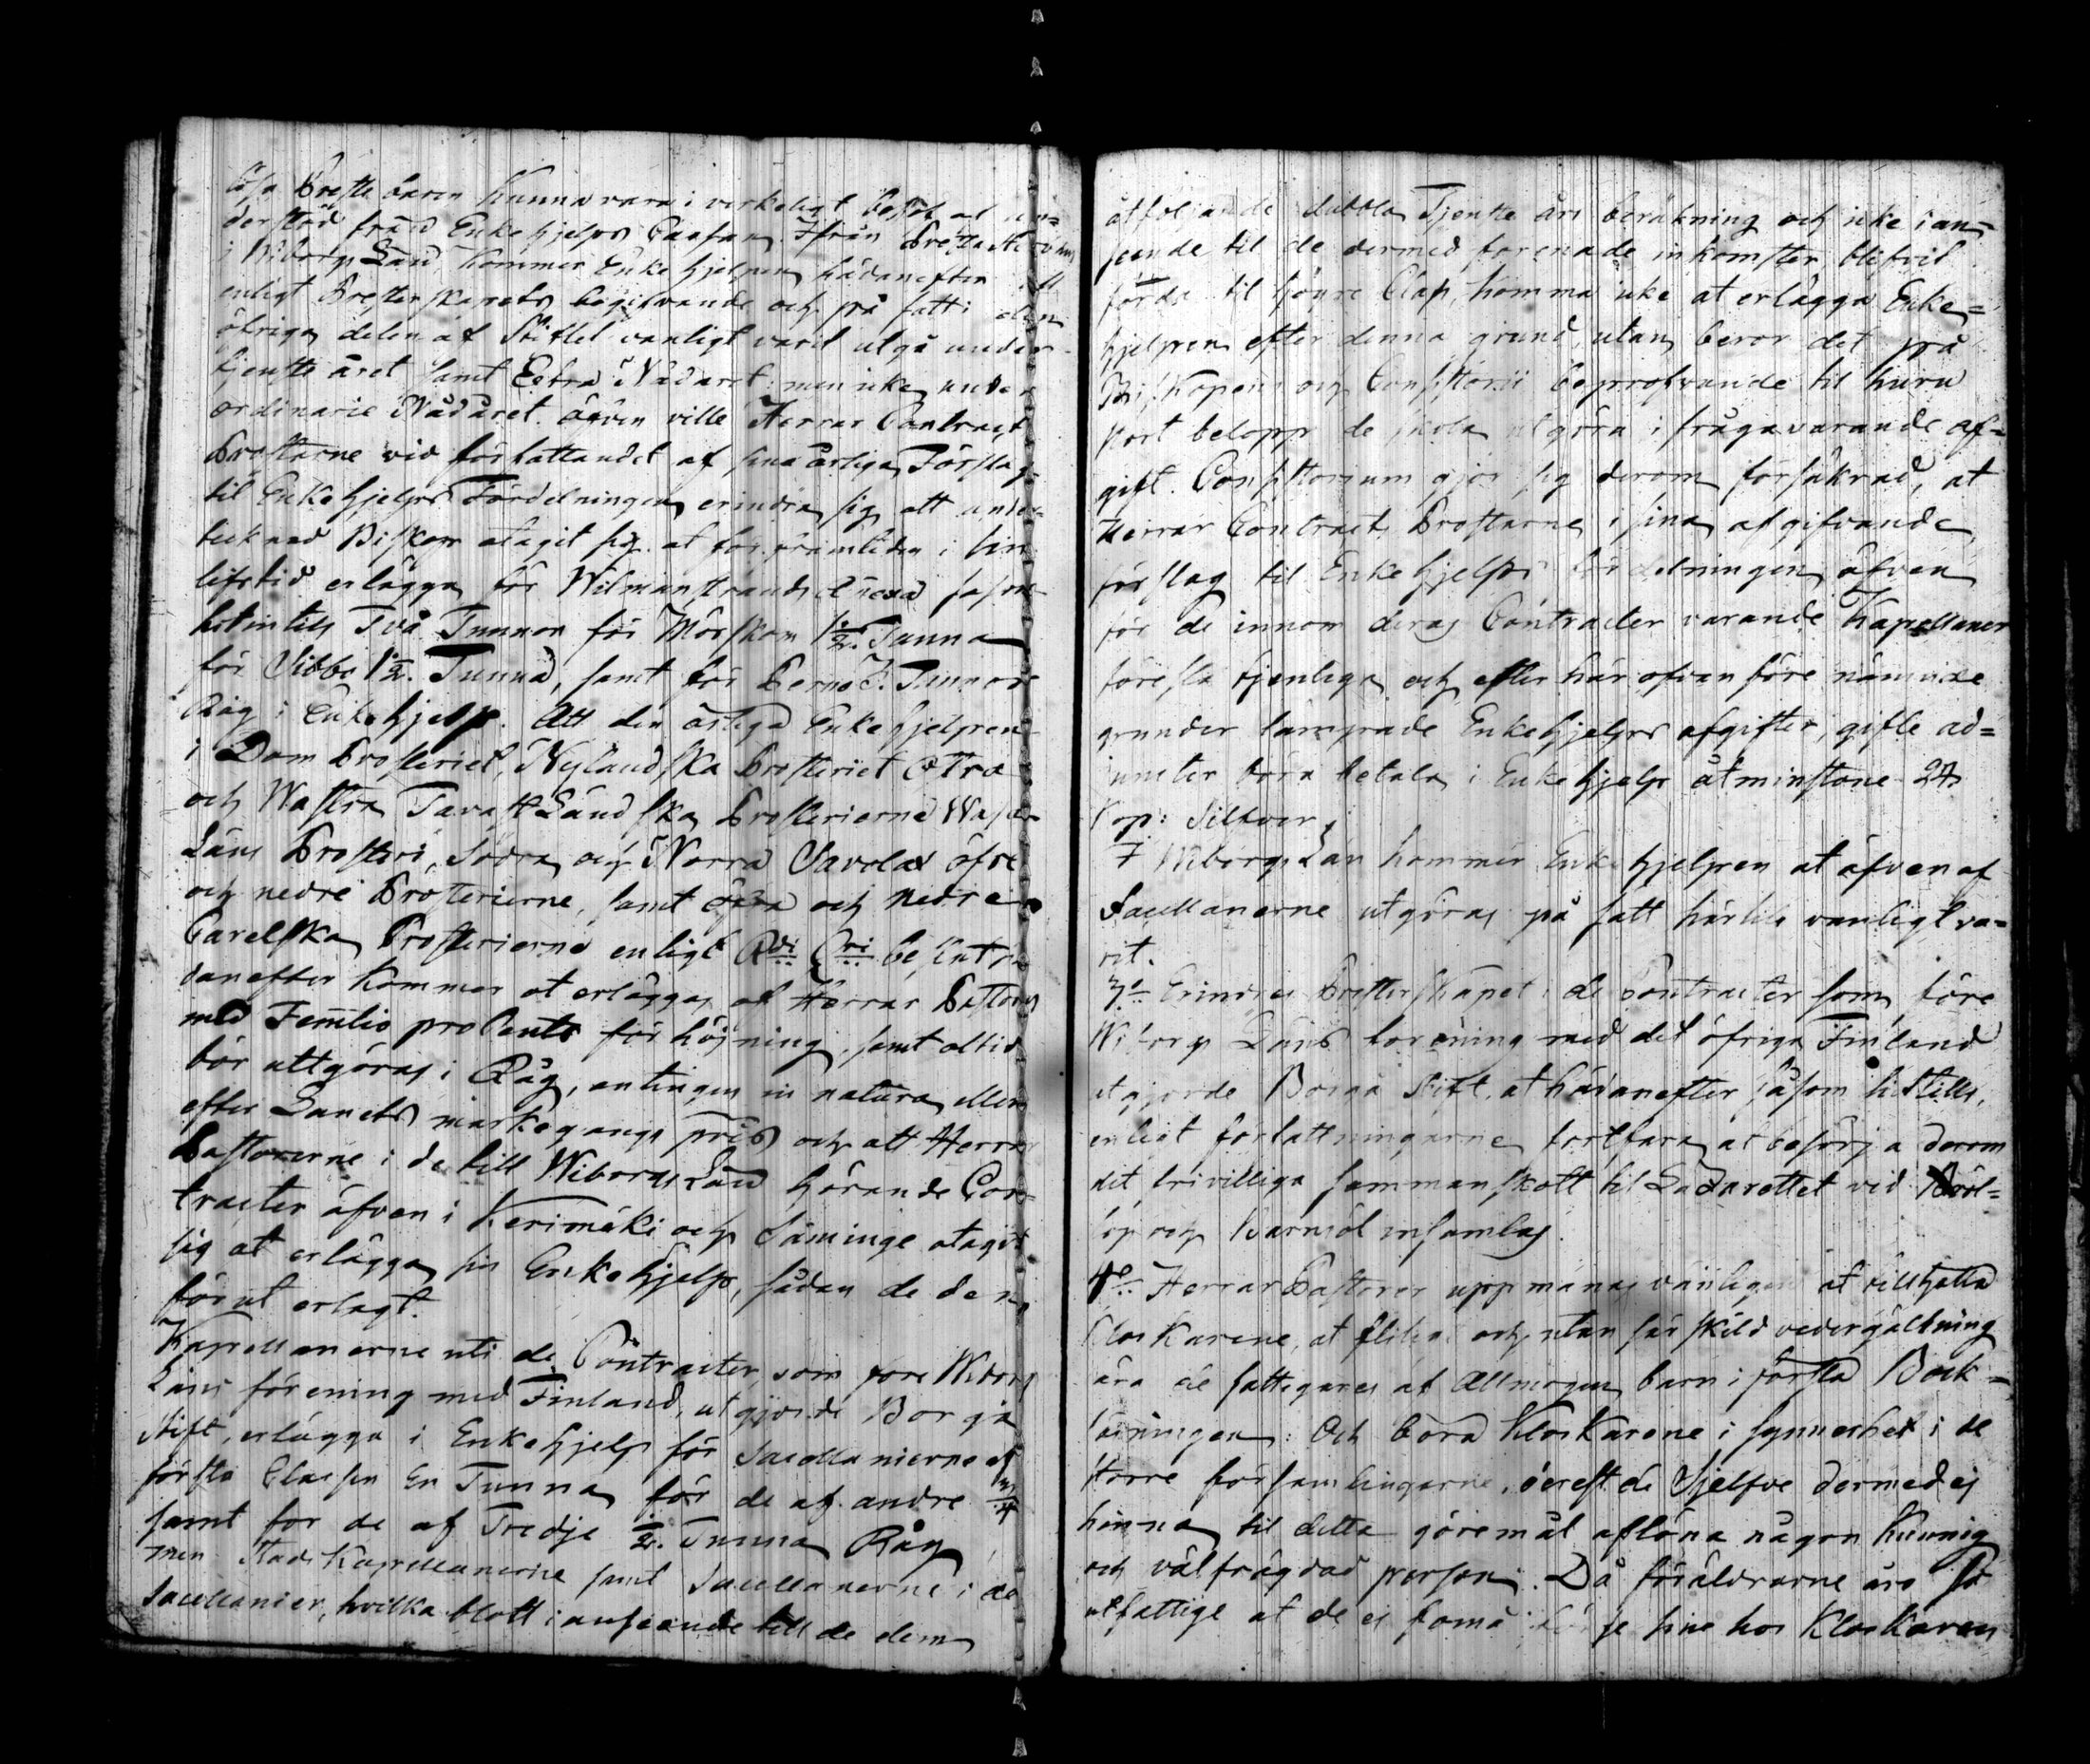 lösa Prestebarn kunna vara i verkeligt behof at un-
derstöd från Enkehjelps Cassan. Ifrån Prestadterne
i Wiborgs Län, kommer Enkehjelpen hädanefter att
enligt Presterskapets begifvande och på satt i den
öfriga delen af Stiftet vanligt varit utgå under
tjensteåret samt Extra Nådåret, men icke under
ordinarie Nådåret. äfven ville Herrar Contracts
Prostarne vid författandet af sina årliga Förslag
til Enkehjelps Fördelningen erindra sig att under-
tecknad Biskop åtagit sig at för framtiden i sin
lifstid erlägga för Wilmanstrands såsom
hitintils Två Tunnor för Mörskom 1 1/2 Tunna
för Sibbo 1 1/2. Tunna, samt för Perno 3. Tunnor
Råg i Enkehjelp. Att den årliga Enkehjelpen
i Domprosteriet, Nylandska Prosteriet Östra
och Westra Tavastländska Prosterierne Wasa
Läns Prosteri, Södra och Norra Savolax öfre
och nedre Prosterierne, samt öfre och nedre
Carelska Prosterierne enligt Rdi Cri beslut
danefter kommer at erläggas af Herrar Pastorer
med Femtio pro Cents förhöjning, samt altid
bör utgöras i Råg, antingen in natura eller
efter Länets markegångs pris och att Herrar
Pastorerne i de till Wiborgs Län hörande Con-
tracter äfven i Kerimäki och Säminge åtagit
sig at erlägga sin Enkehjelp, sådan de den
förut erlagt.
Kapellanerne uti de Contracter, som före Wiborgs
Läns förening med Finland, utgjorde Borgå
Stift, erlägga i Enkehjelp för Sacellanierne af
första Classen En Tunna för de af andre 3/4
samt för de af Tredje 1/2. Tunna Råg
men Stads Kapellanerne samt Sacellanerne i de
Sacellanier, hvilka blott i anseende till de dem
åtföljande dubbla Tjenste års beräkning och icke i an-
seende til de dermed förenade inkomster, blifvit
förda til högre Class, komma icke at erlägga Enke-
hjelpen efter denna grund, utan beror det på
Biskopens och Consistorii bepröfvande til huru
stort belopp de skola utgöra i frågavarande af-
gift. Consistorium gjör sig derom försäkrad, at
Herrar Contracts Prostarne i sina afgifvande
förslag til Enkehjelps fördelningen äfven
för de innom deras Contracter varande Kapellaner
föreslå tjenliga och efter här ofvanföre nämnde
grunder lämpade Enkehjelps afgifter, gifte ad-
juncter böra betala i Enkehjelp åtminstone 24
Kop: Silfver.
I Wiborgs Län kommer Enkehjelpen at äfven af
Sacellanerne utgöras på satt härtils vanligt va-
rit.
3o Erindras Presterskapet i de Contracter som före
Wiborgs Läns förening med det öfriga Finland
utgjorde Borgå Stift, at hädanefter såsom hittills,
enligt författningarne fortfara at besörja derom
det frivilliga sammanskott til Lazarettet vid Bröl-
lop och Barnsöl insamlas.
4o Herrar Pastorer uppmanas vänligen at tillhålla
Klockarene, at flitigt och utan särskild vedergällning
lära de fattigares af Allmogen barn i första Bok-
läsningen: Och böra Klockarene i synnerhet i de
större församlingarne, derest de Sjelfve dermed ej
hinna til detta göremål aflöna någon kunnig
och välfrägdad person. Då föräldrarne äro så
utfattige at de ej förmå föda sine hos Klockaren